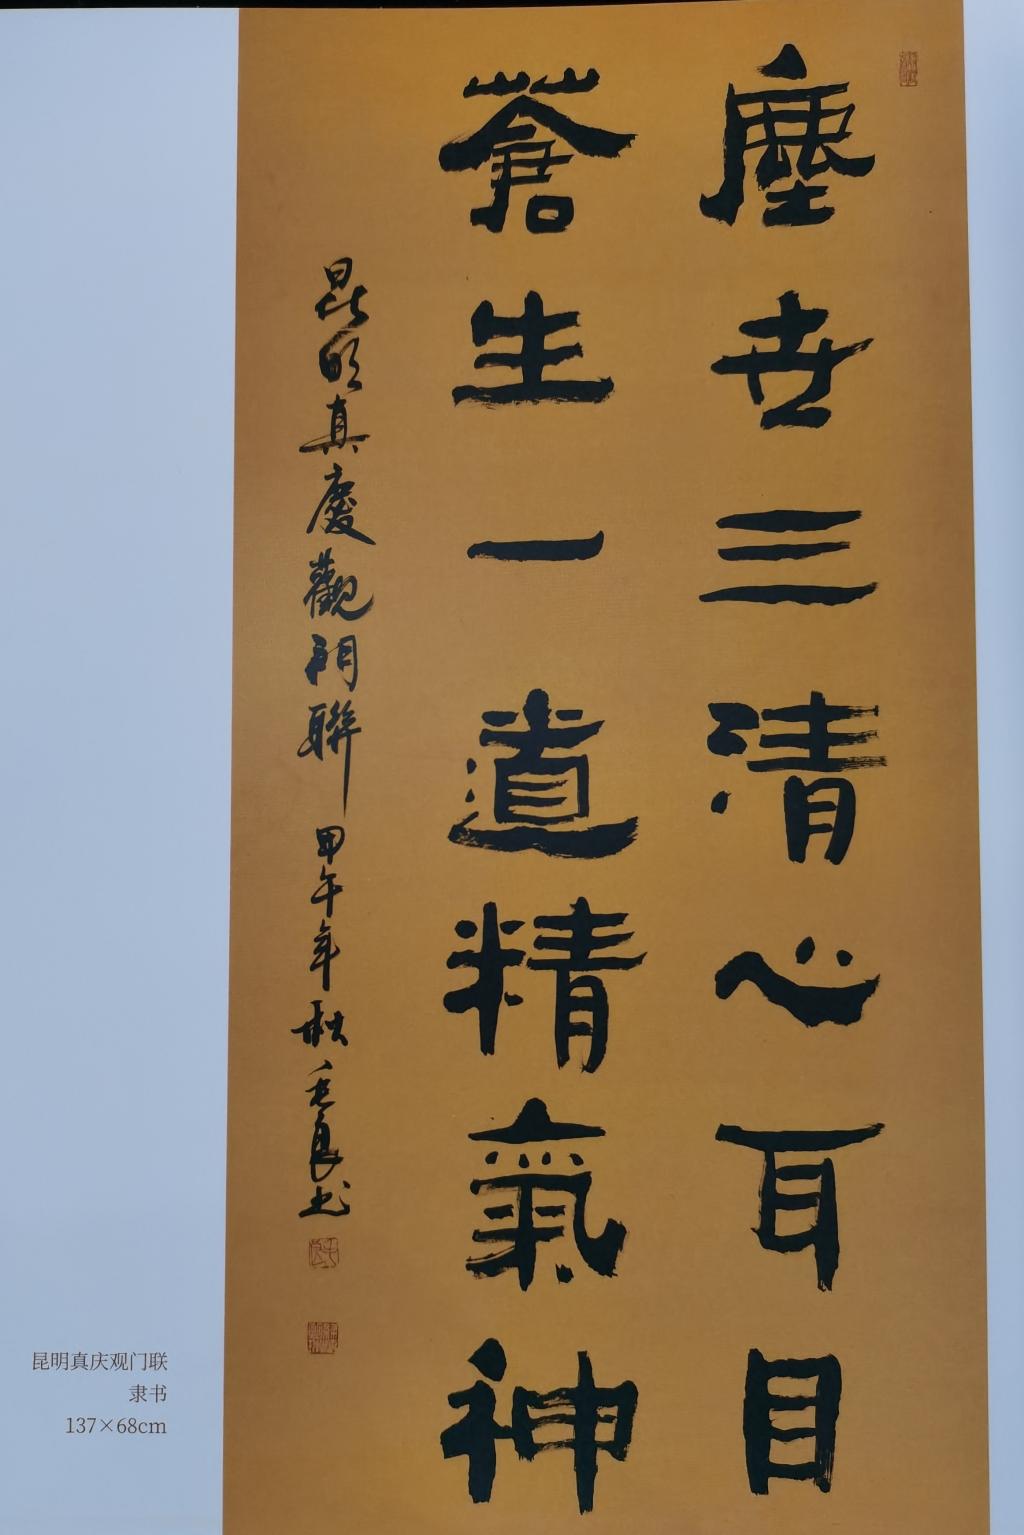 塵世三清心耳目
蒼生一道精氣神
昆明真慶觀門聯 甲午年秋 毛良书
昆明真庆观门联
隶书
137×68cm